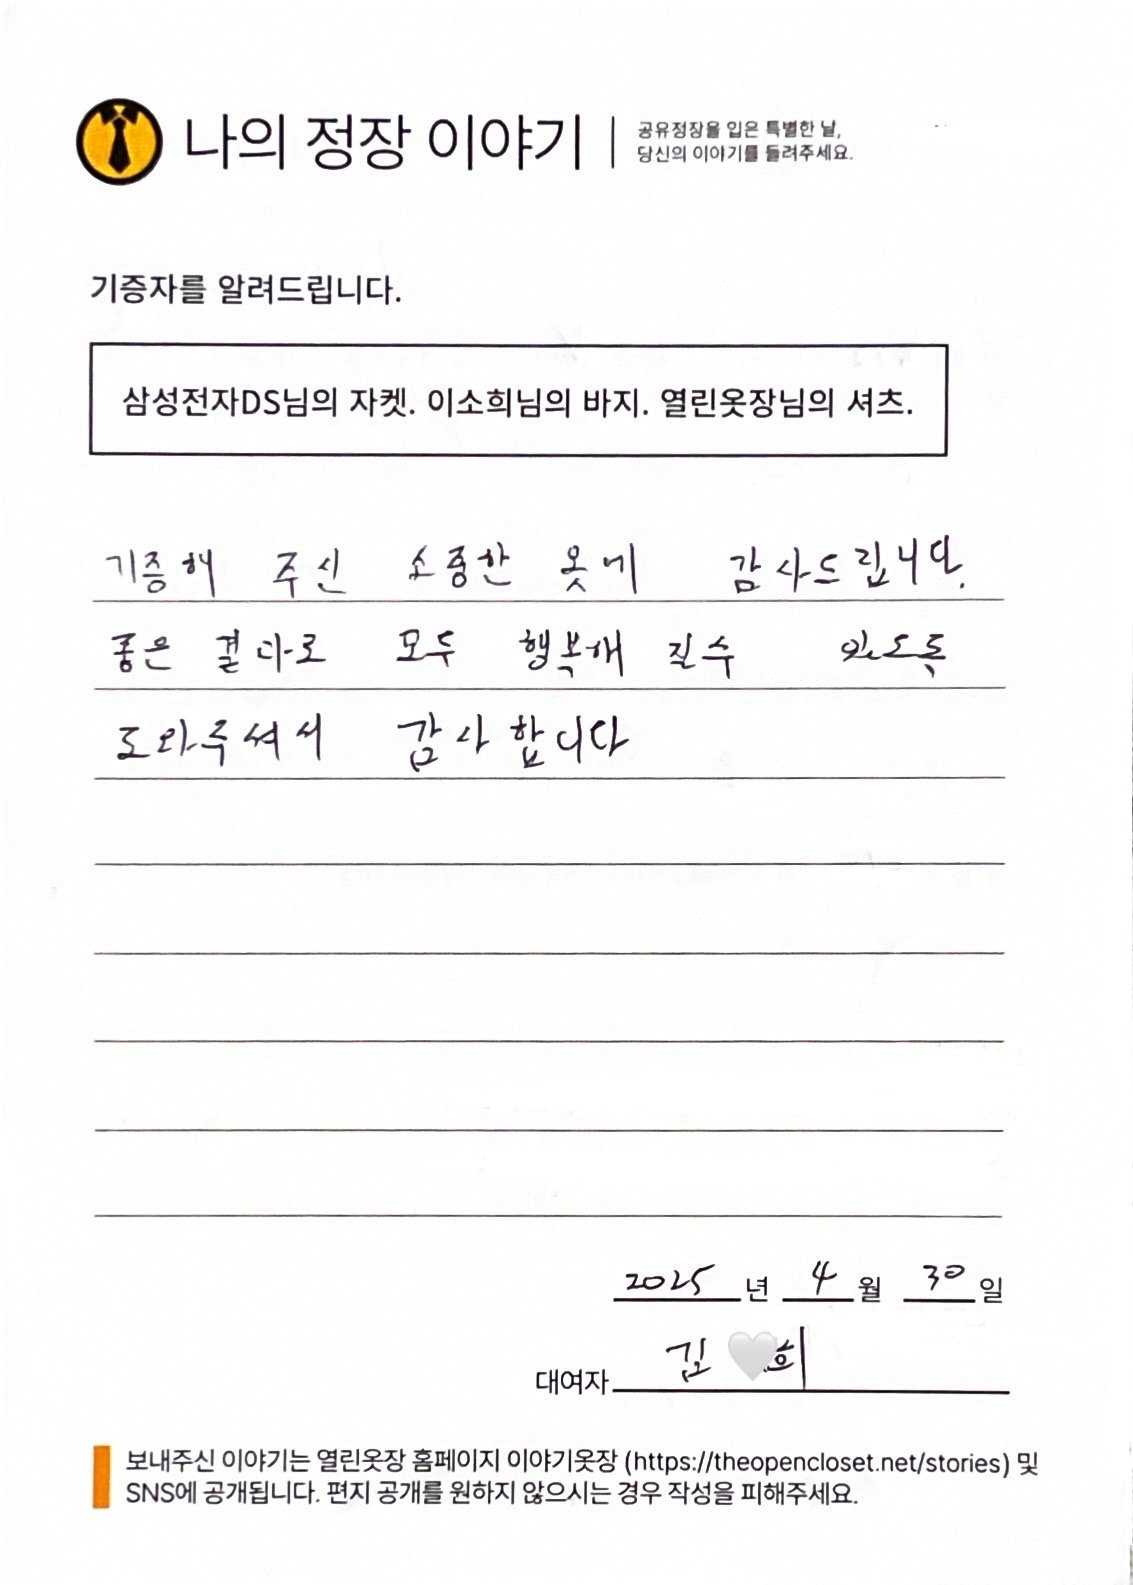 나의 정장 이야기
공유정장을 입은 특별한 날,
당신의 이야기를 들려주세요.
기증자를 알려드립니다.
삼성전자DS님의 자켓. 이소희님의 바지. 열린옷장님의 셔츠.
기증해 주신 소중한 옷에 감사드립니다.
좋은 결과로 모두 행복해 질수 있도록
도와주셔서 감사합니다
2025 년 4 월 30 일
대여자 김 희
보내주신 이야기는 열린옷장 홈페이지 이야기옷장 (https://theopencloset.net/stories) 및
SNS에 공개됩니다. 편지 공개를 원하지 않으시는 경우 작성을 피해주세요.